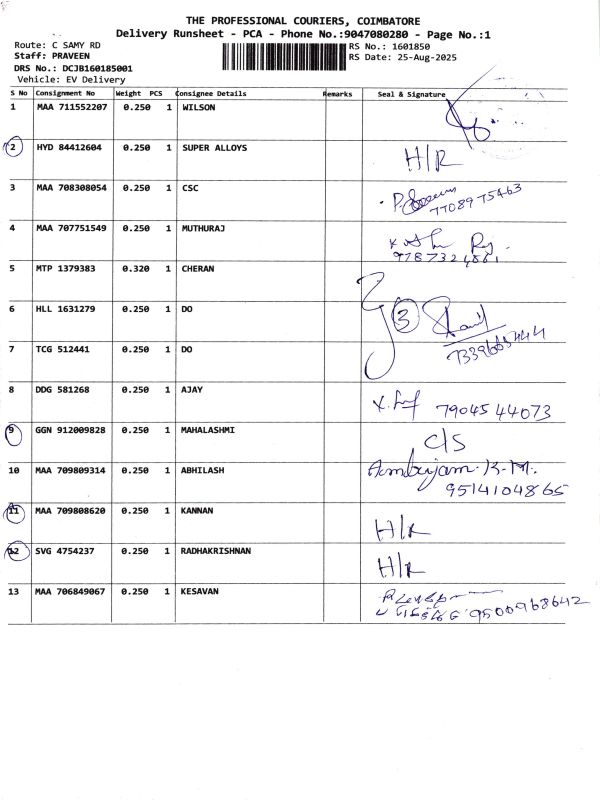 THE PROFESSIONAL COURIERS, COIMBATORE
Delivery Runsheet - PCA - Phone No.:9047080280 - Page No.:1
Route: C SAMY RD RS No.: 1601850
Staff: PRAVEEN RS Date: 25-Aug-2025
DRS No.: DCJB160185001
Vehicle: EV Delivery
S No Consignment No Weight PCS Consignee Details Remarks Seal & Signature
1 MAA 711552207 0.250 1 WILSON
2 HYD 84412604 0.250 1 SUPER ALLOYS H/R
3 MAA 708308054 0.250 1 CSC 7708975463
4 MAA 707751549 0.250 1 MUTHURAJ
5 MTP 1379383 0.320 1 CHERAN
6 HLL 1631279 0.250 1 DO 3
7 TCG 512441 0.250 1 DO
8 DDG 581268 0.250 1 AJAY 7904544073
9 GGN 912009828 0.250 1 MAHALASHMI C/S
10 MAA 709809314 0.250 1 ABHILASH Ambujam.K.M.
9514104865
11 MAA 709808620 0.250 1 KANNAN H/R
12 SVG 4754237 0.250 1 RADHAKRISHNAN H/R
13 MAA 706849067 0.250 1 KESAVAN 9500968642